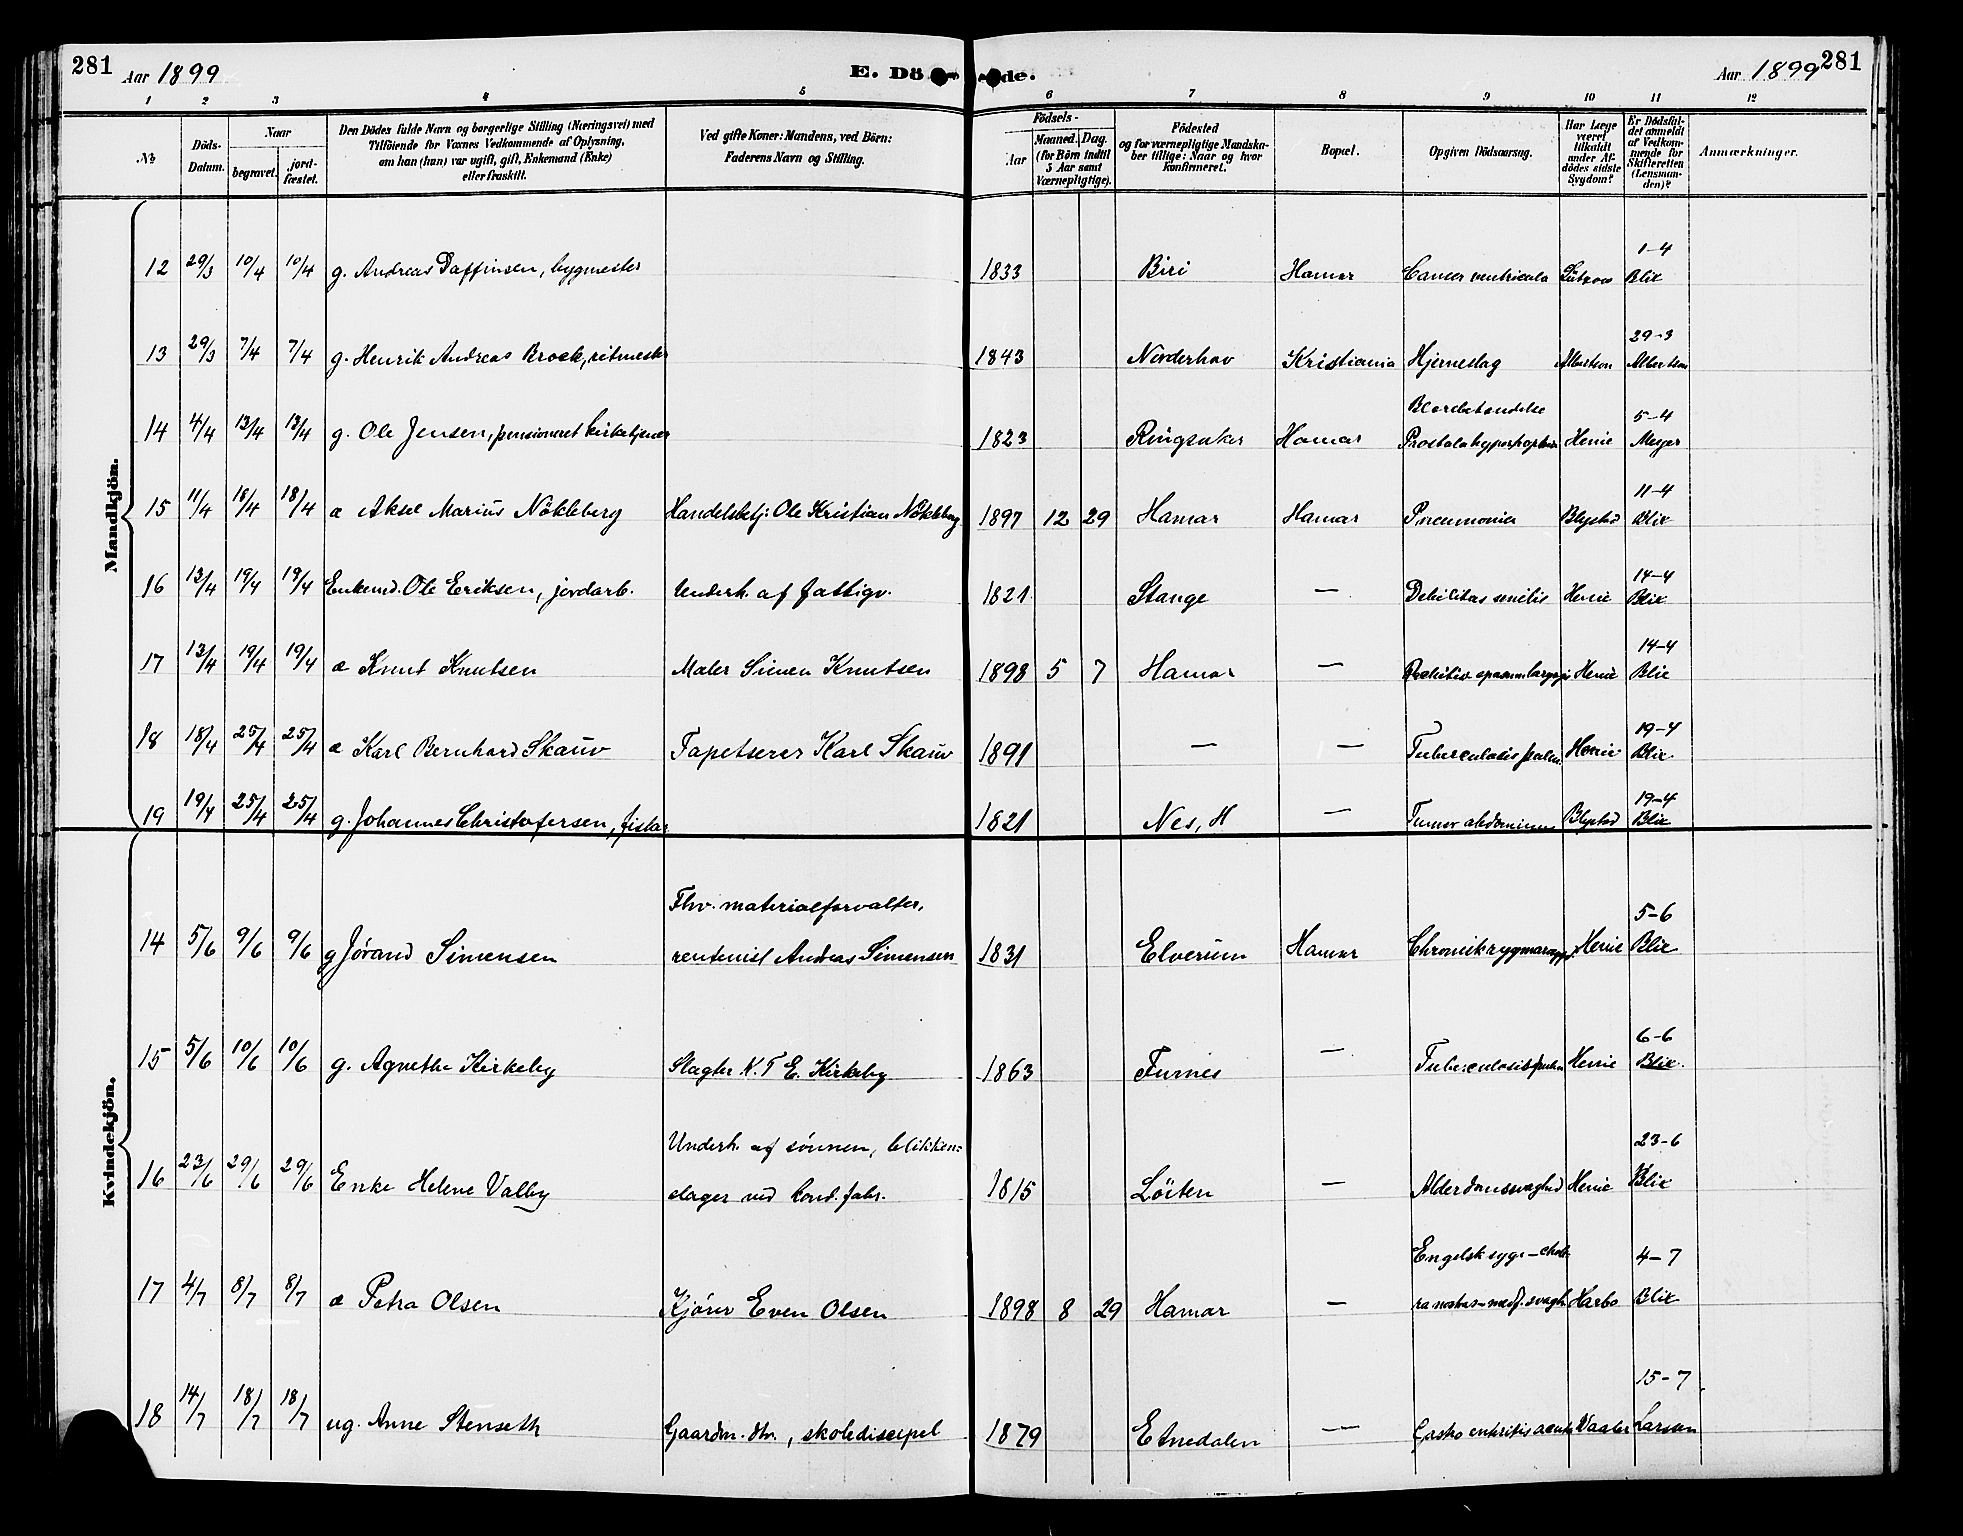 281 Aar 1899 E. Dö de. Aar 1899 281
1 2 3 4 5 6 7 8 9 10 11 12
No. Döds-Datum. Naar begravet. jordfæstet. Den Dödes fulde Navn og borgerlige Stilling (Næringsvei) med Tilföiende for Voxnes Vedkommende af Oplysning, om han (hun) var ugift, gift, Enkemand (Enke) eller fraskilt. Ved gifte Koner: Mandens, ved Börn: Faderens Navn og Stilling. Födsels- Aar Maaned. Dag. (for Börn indtil 5 Aar samt Værnepligtige). Födested og for værnepligtige Mandskaber tillige: Naar og hvor konfirmeret. Bopæl. Opgiven Dödsaarsag. Har Læge været tilkaldt under Afdödes sidste Sygdom? Er Dödsfaldet anmeldt af Vedkommende for Skifteretten (Lensmanden)? Anmærkninger.
Mandkjön.
12 29/3 10/4 10/4 g. Andreas Daffinsen, bygmester 1833 Biri Hamar Cancer ventricula Lützow 1-4 Blix
13 29/3 7/4 7/4 g. Henrik Andreas Brock, ritmester 1843 Norderhov Kristiania Hjerneslag Albertson 29-3 Albertson
14 4/4 13/4 13/4 g. Ole Jensen, pensioneret kirketjener 1823 Ringsaker Hamar Blærebetændelse Prostatahypertrophia Henie 5-4 Meyer
15 11/4 18/4 18/4 æ Aksel Marius Nökleberg Handelsbetj. Ole Kristian Nökleberg 1897 12 29 Hamar Hamar Pneumonia Blystad 11-4 Blix
16 13/4 19/4 19/4 Enkemd. Ole Eriksen, jordarb. Underh. af fattigv. 1821 Stange — Debilitas senilis Henie 14-4 Blix
17 13/4 19/4 19/4 æ Knut Knutsen Maler Simen Knutsen 1898 5 7 Hamar — Henie 14-4 Blix
18 18/4 25/4 25/4 æ Karl Bernhard Skauv Tapetserer Karl Skauv 1891 — — Tuberculosis pulm. Henie 19-4 Blix
19 19/4 25/4 25/4 g. Johannes Christofersen, fisker 1821 Nes, H — Tumor abdominis Blystad 19-4 Blix
Kvindekjön.
14 5/6 9/6 9/6 g Jörand Simensen Fhv. materialforvalter, rentenist Andreas Simensen 1831 Elverum Hamar Henie 5-6 Blix
15 5/6 10/6 10/6 g. Agnethe Kirkeby Slagter N. T. E. Kirkeby 1863 Furnes — Tuberculosis pulm Henie 6-6 Blix.
16 23/6 29/6 29/6 Enke Helene Valby Underh. af sönnen, blikkenslager ved kond. fabr. 1815 Löiten — Alderdomssvaghed Henie 23-6 Blix
17 4/7 8/7 8/7 æ Petra Olsen Kjörer Even Olsen 1898 8 29 Hamar — Engelsk syge – cholera nostras – medf. svagh Harbo 4-7 Blix
18 14/7 18/7 18/7 ug. Anne Stenseth Gaardm. dtr., skolediscipel 1879 Etnedalen — Gastro enteritis acuta Vaaler 15-7 Larsen